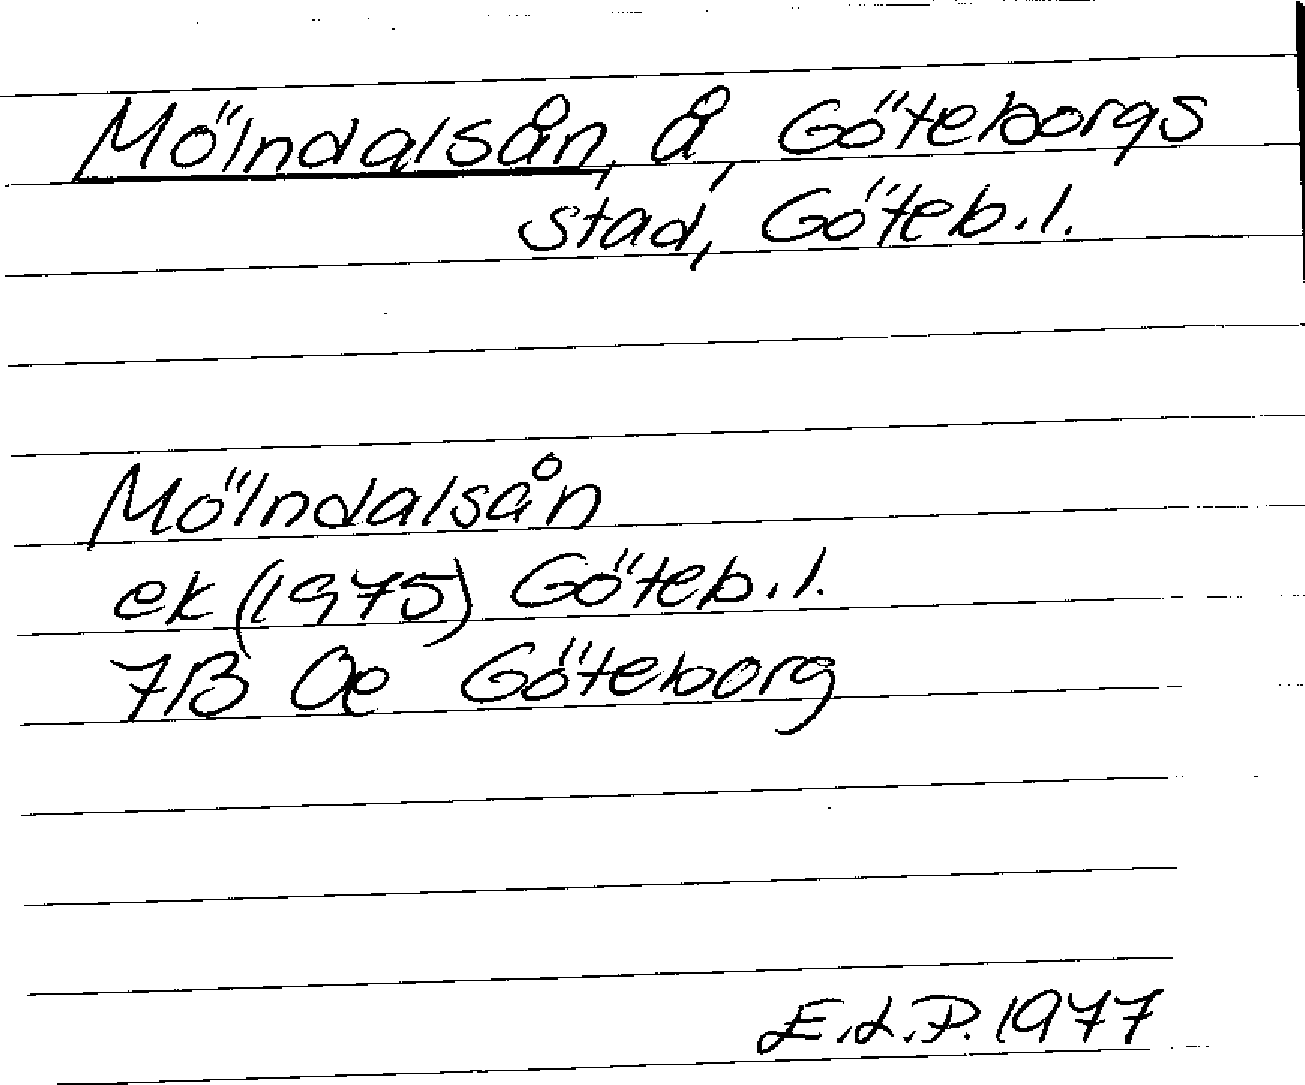 Mölndalsån, å, Göteborgs
stad, Göteb.l.
Mölndalsån
ek (1975) Göteb.l.
7B Oe Göteborg
E.L.P. 1977